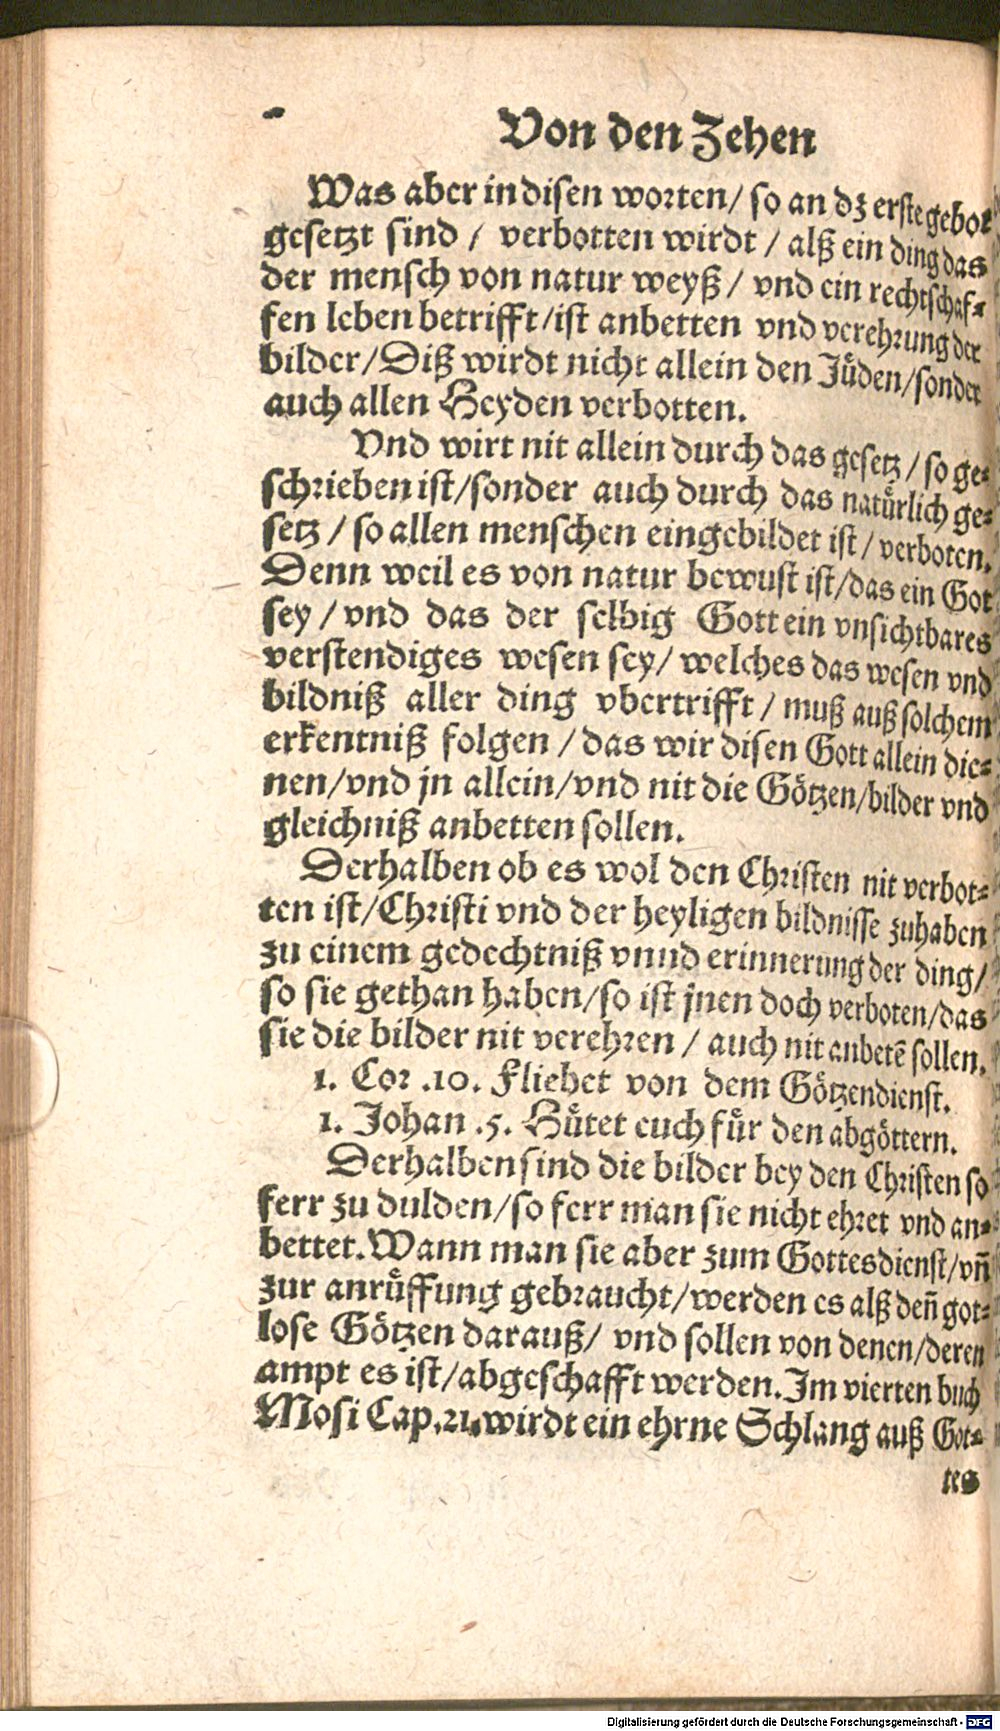 Von den Zehen
Was aber in disen worten/ so an dz erste gebot
gesetzt sind / verbotten wirdt / alß ein ding das
der mensch von natur weyß / vnd ein rechtschaf⸗
fen leben betrifft/ist anbetten vnd verehrung der
bilder/Diß wirdt nicht allein den Jüden/sonder
auch allen Heyden verbotten.
Vnd wirt nit allein durch das gesetz / so ge⸗
schrieben ist/sonder auch durch das natürlich ge⸗
setz / so allen menschen eingebildet ist / verboten.
Denn weil es von natur bewust ist/das ein Got
sey / vnd das der selbig Gott ein vnsichtbares
verstendiges wesen sey/ welches das wesen vnd
bildniß aller ding vbertrifft / muß auß solchem
erkentniß folgen / das wir disen Gott allein die⸗
nen/vnd jn allein/vnd nit die Götzen/bilder vnd
gleichniß anbetten sollen.
Derhalben ob es wol den Christen nit verbot⸗
ten ist/Christi vnd der heyligen bildnisse zuhaben
zu einem gedechtniß vnnd erinnerung der ding/
so sie gethan haben/so ist jnen doch verboten/das
sie die bilder nit verehren / auch nit anbetē sollen.
1. Cor .10. Fliehet von dem Götzendienst.
1. Johan .5. Hütet euch für den abgöttern.
Derhalben sind die bilder bey den Christen so
ferr zu dulden/so ferr man sie nicht ehret vnd an⸗
bettet. Wann man sie aber zum Gottesdienst/vñ
zur anrüffung gebraucht/werden es alß deñ got⸗
lose Götzen darauß/ vnd sollen von denen/deren
ampt es ist/abgeschafft werden. Im vierten buch
Mosi Cap.21. wirdt ein ehrne Schlang auß Got⸗
tes
Digitalisierung gefördert durch die Deutsche Forschungsgemeinschaft - DFG